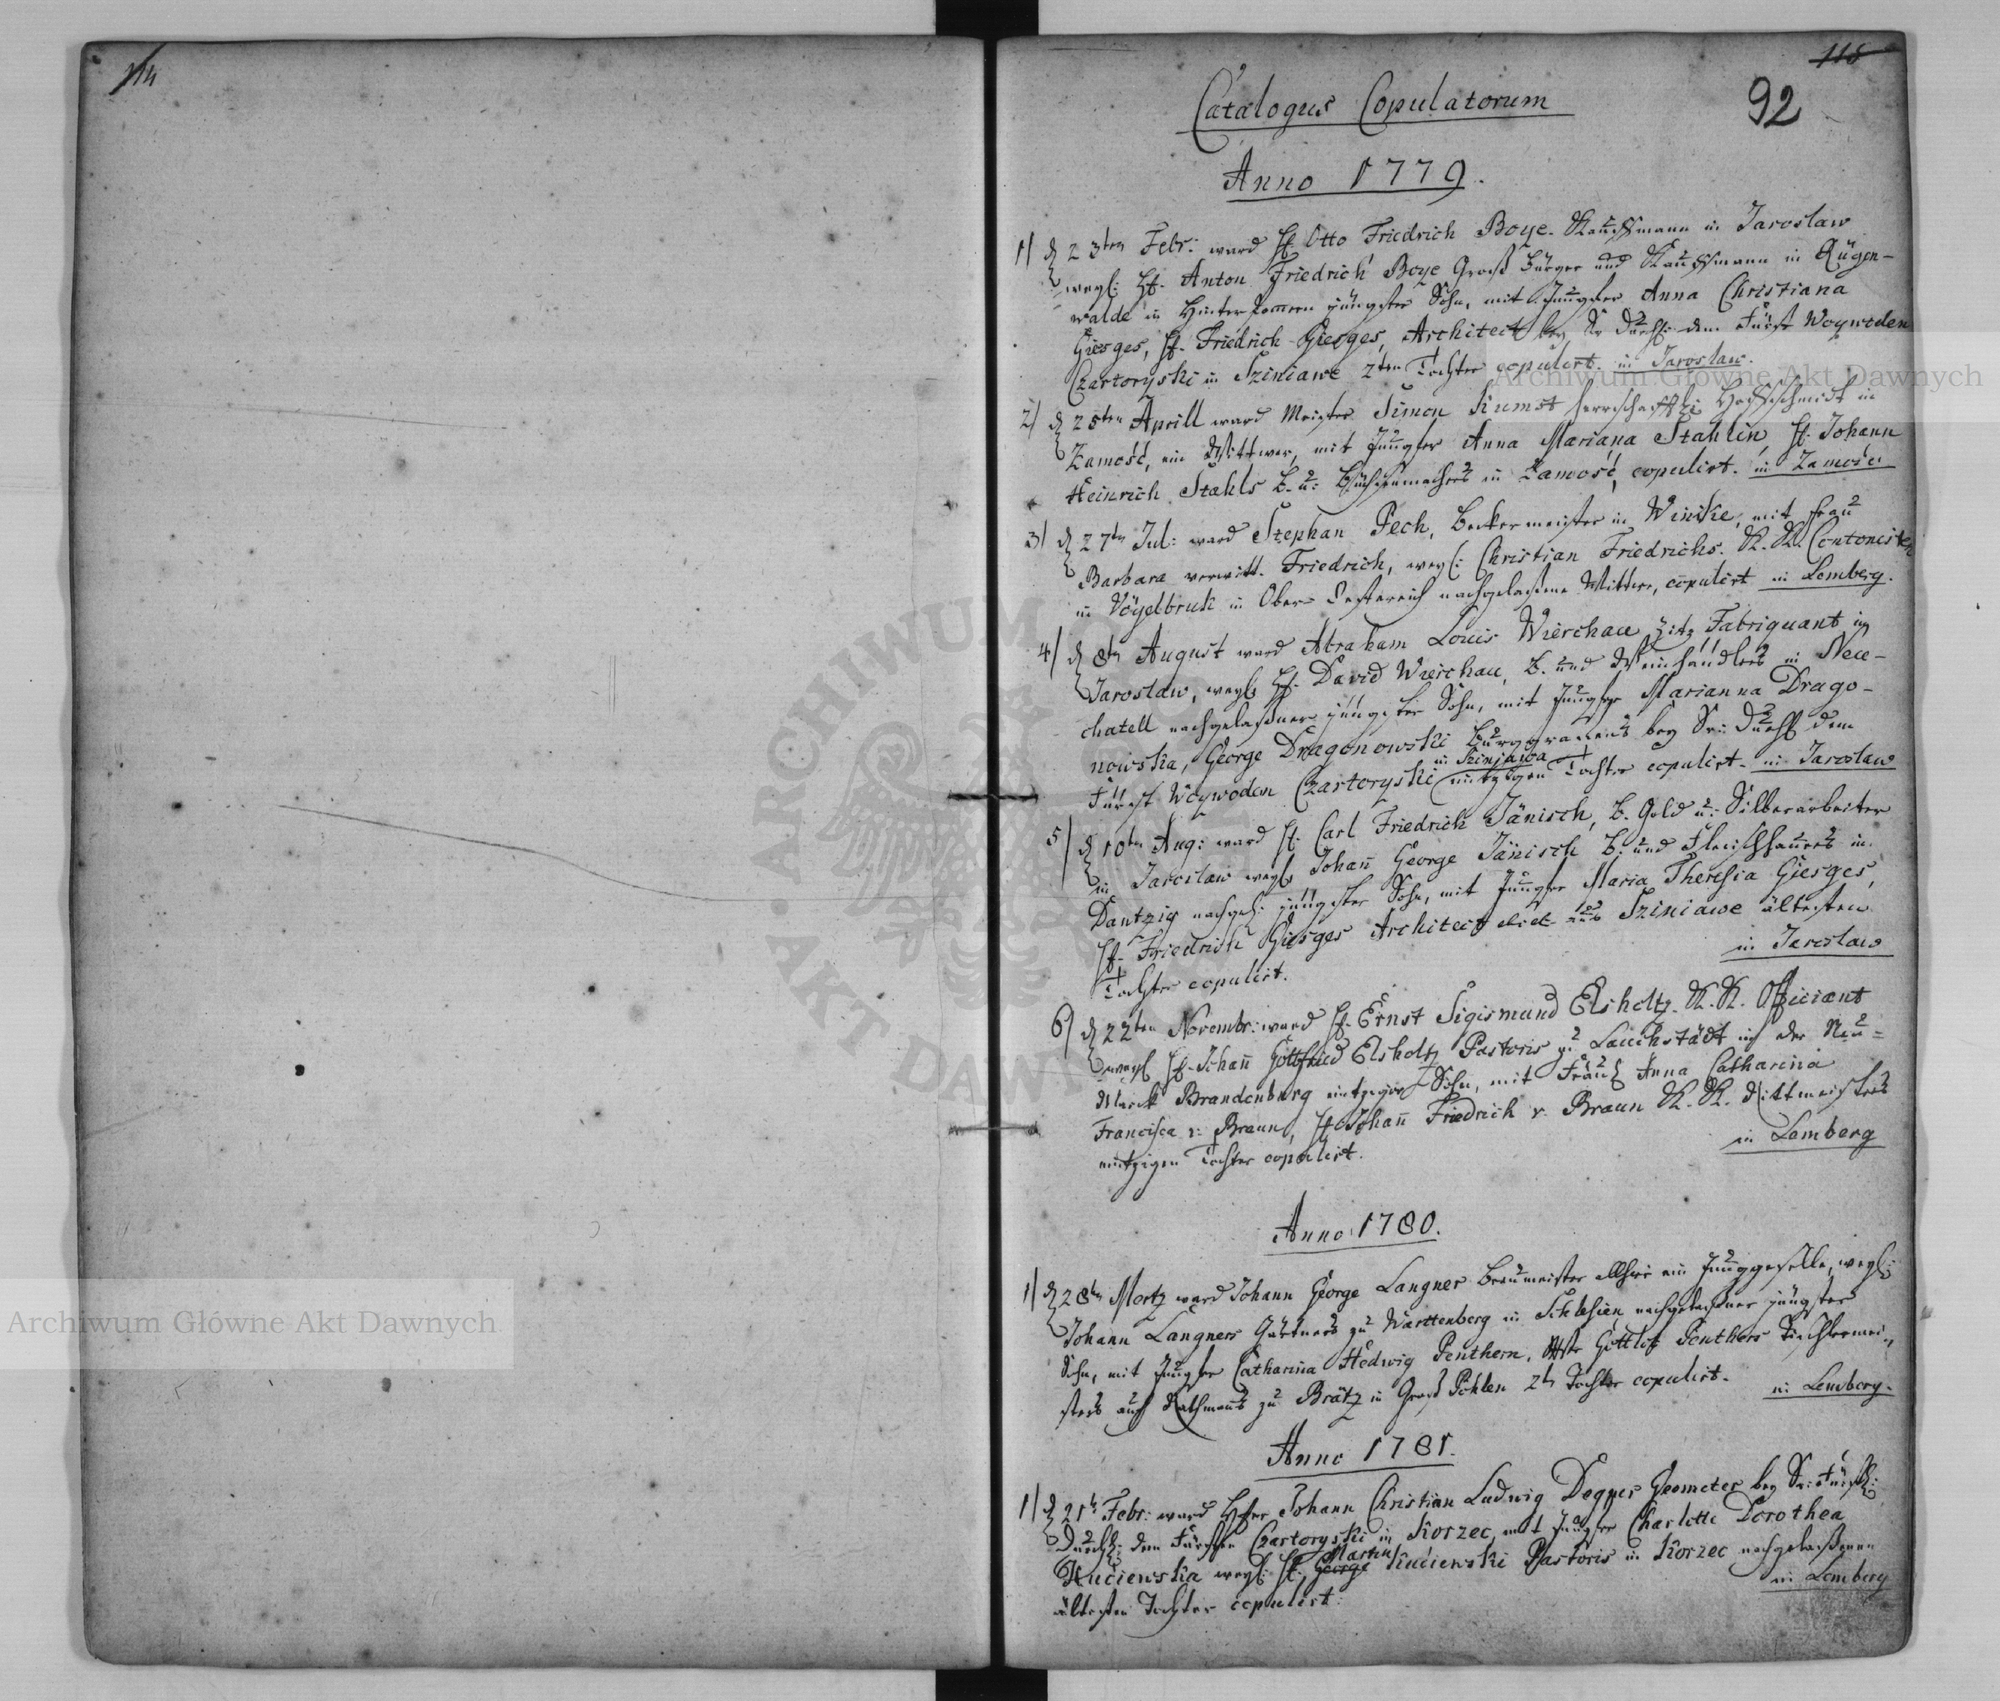 114
115
92
Catalogus Copulatorum
Anno 1779.
1) d 23ten Febr: ward H. Otto Friedrich Boye. Kauffmann in Jaroslaw
weyl: H. Anton Friedrich Boye Groß Bürger und Kauffmann in Rügen-
walde in Hinter Pomern jüngster Sohn, mit Jungfer Anna Christiana
Giesges, H. Friedrich Giesges, Architect bey Sr Durchl: dem Fürst Woywoden
Czartoryski in Sziniawe 2ten Tochter copulirt. in Jaroslaw.
2) d 25ten Aprill ward Meister Simon Kumst herrschafftl: Huffschmidt in
Zamość, ein Wittwer, mit Jungfer Anna Mariana Stahlin, H. Johann
Heinrich Stahls B. u: Büchsenmachers in Zamość, copulirt. in Zamość
3) d 27ten Jul: ward Stephan Pech, Beckermeister in Winike, mit Frau
Barbara verwitt. Friedrich, weyl: Christian Friedrichs. K. K. Contonisten
in Vögelbruk in Ober Oesterreich nachgelaßene Wittwe, copulirt in Lemberg.
4) d 8ten August ward Abraham Louis Wierchau Zitz Fabriquant in
Jaroslaw, weyl: H. David Wierchau, B. und Weinhändlers in Neu-
chatell nachgelaßner jüngster Sohn, mit Jungfer Marianna Drago-
nowska, George Dragonowski Burggrafens bey Sr: Durchl dem
in Szinjawa
Fürst Woywoden Czartoryski eintzigen Tochter copulirt. in Jaroslaw
5) d 10ten Aug: ward H. Carl Friedrich Jänisch, B. Gold u: Silberarbeiter
in Jaroslaw weyl: Johañ George Jänisch B. und Fleischhauers in
Dantzig nachgel: jüngster Sohn, mit Jungfer Maria Theresia Giesges,
H. Friedrich Giesges Architect aus Sziniawe ältesten
Tochter copulirt. in Jaroslaw
6) d 22ten Novembr: ward H. Ernst Sigismund Elsholtz. K. K. Officiant
weyl H. Johañ Gottfried Elsholtz Pastoris zu Lauchstädt in der Neu=
Mark Brandenburg eintziger Sohn, mit Fräul Anna Catharina
Francisca v: Braun, H. Johañ Friedrich v. Braun K. K. Rittmeisters
eintzigen Tochter copulirt. in Lemberg
Anno 1780.
1) d 28ten Mertz ward Johann George Langner Braumeister allhier ein Junggeselle, weyl:
Johann Langners Gärtners zu Warttenberg in Schlesien nachgelaßner jüngster
Sohn, mit Jungfer Catharina Hedwig Penthern, Gottlob Penthers Tischlermei-
sters auch Rathmans zu Brätz in Groß Pohlen 2ten Tochter copulirt. in Lemberg.
Anno 1781.
1) d 21ten Febr: ward Herr Johann Christian Ludwig Degner Geometer bey Sr: Fürstl:
Durchl: dem Fürsten Czartoryski in Korzec, mit Jungfer Charlotte Dorothea
Martin
Kuciewska weyl: H. George Kuciewski Pastoris in Korzec nachgelaßenen
ältesten Tochter copulirt. in Lemberg
Archiwum Główne Akt Dawnych
Archiwum Główne Akt Dawnych
ARCHIWUM
AKT DAWN